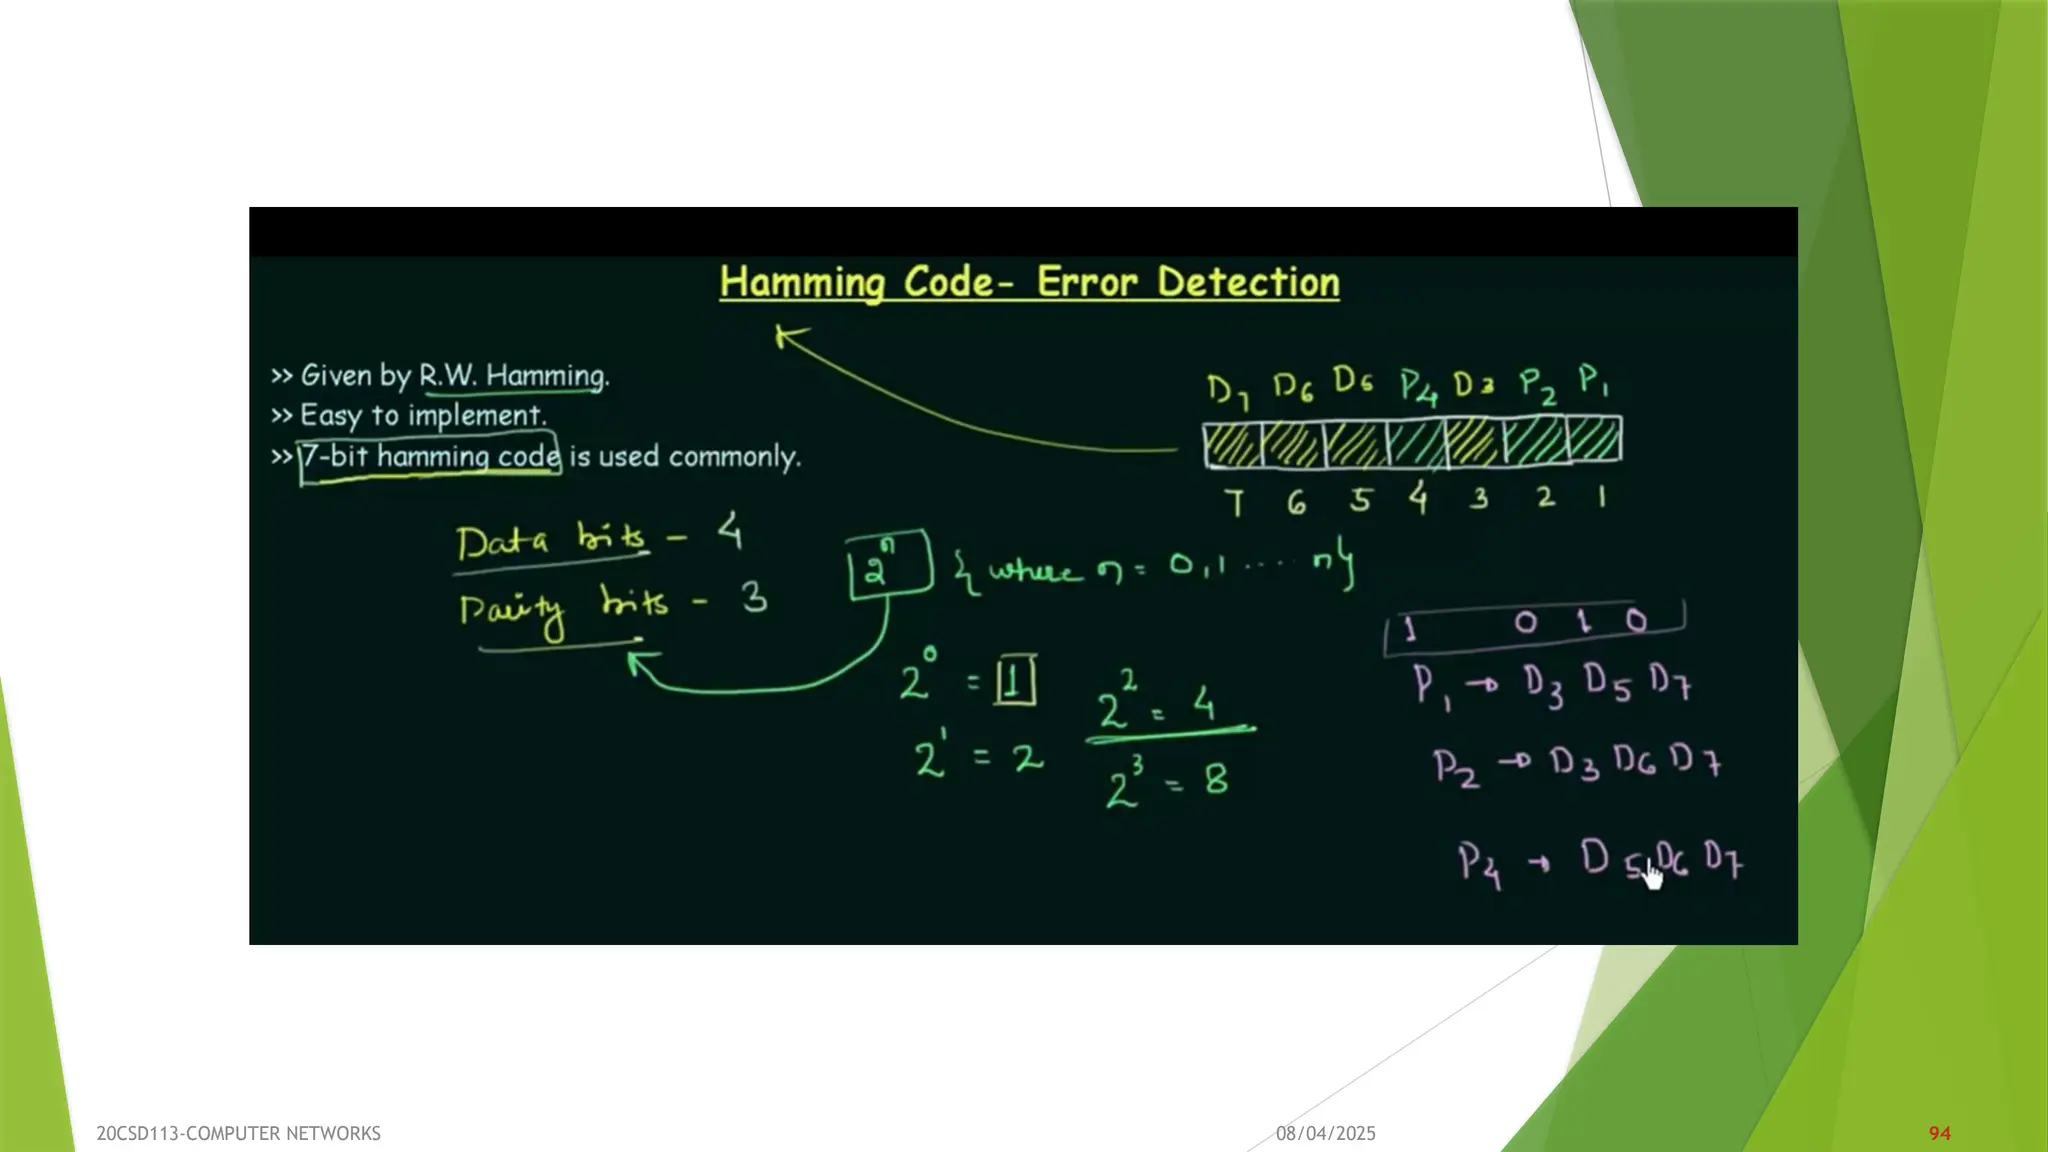 Hamming Code- Error Detection
>> Given by R.W. Hamming.
>> Easy to implement.
>> 7-bit hamming code is used commonly.
D7 D6 D5 P4 D3 P2 P1
7 6 5 4 3 2 1
Data bits - 4
Parity bits - 3
2^n { where n = 0, 1 .... n }
2^0 = 1
2^1 = 2
2^2 = 4
2^3 = 8
1 0 1 0
P1 → D3 D5 D7
P2 → D3 D6 D7
P4 → D5 D6 D7
20CSD113-COMPUTER NETWORKS
08/04/2025
94